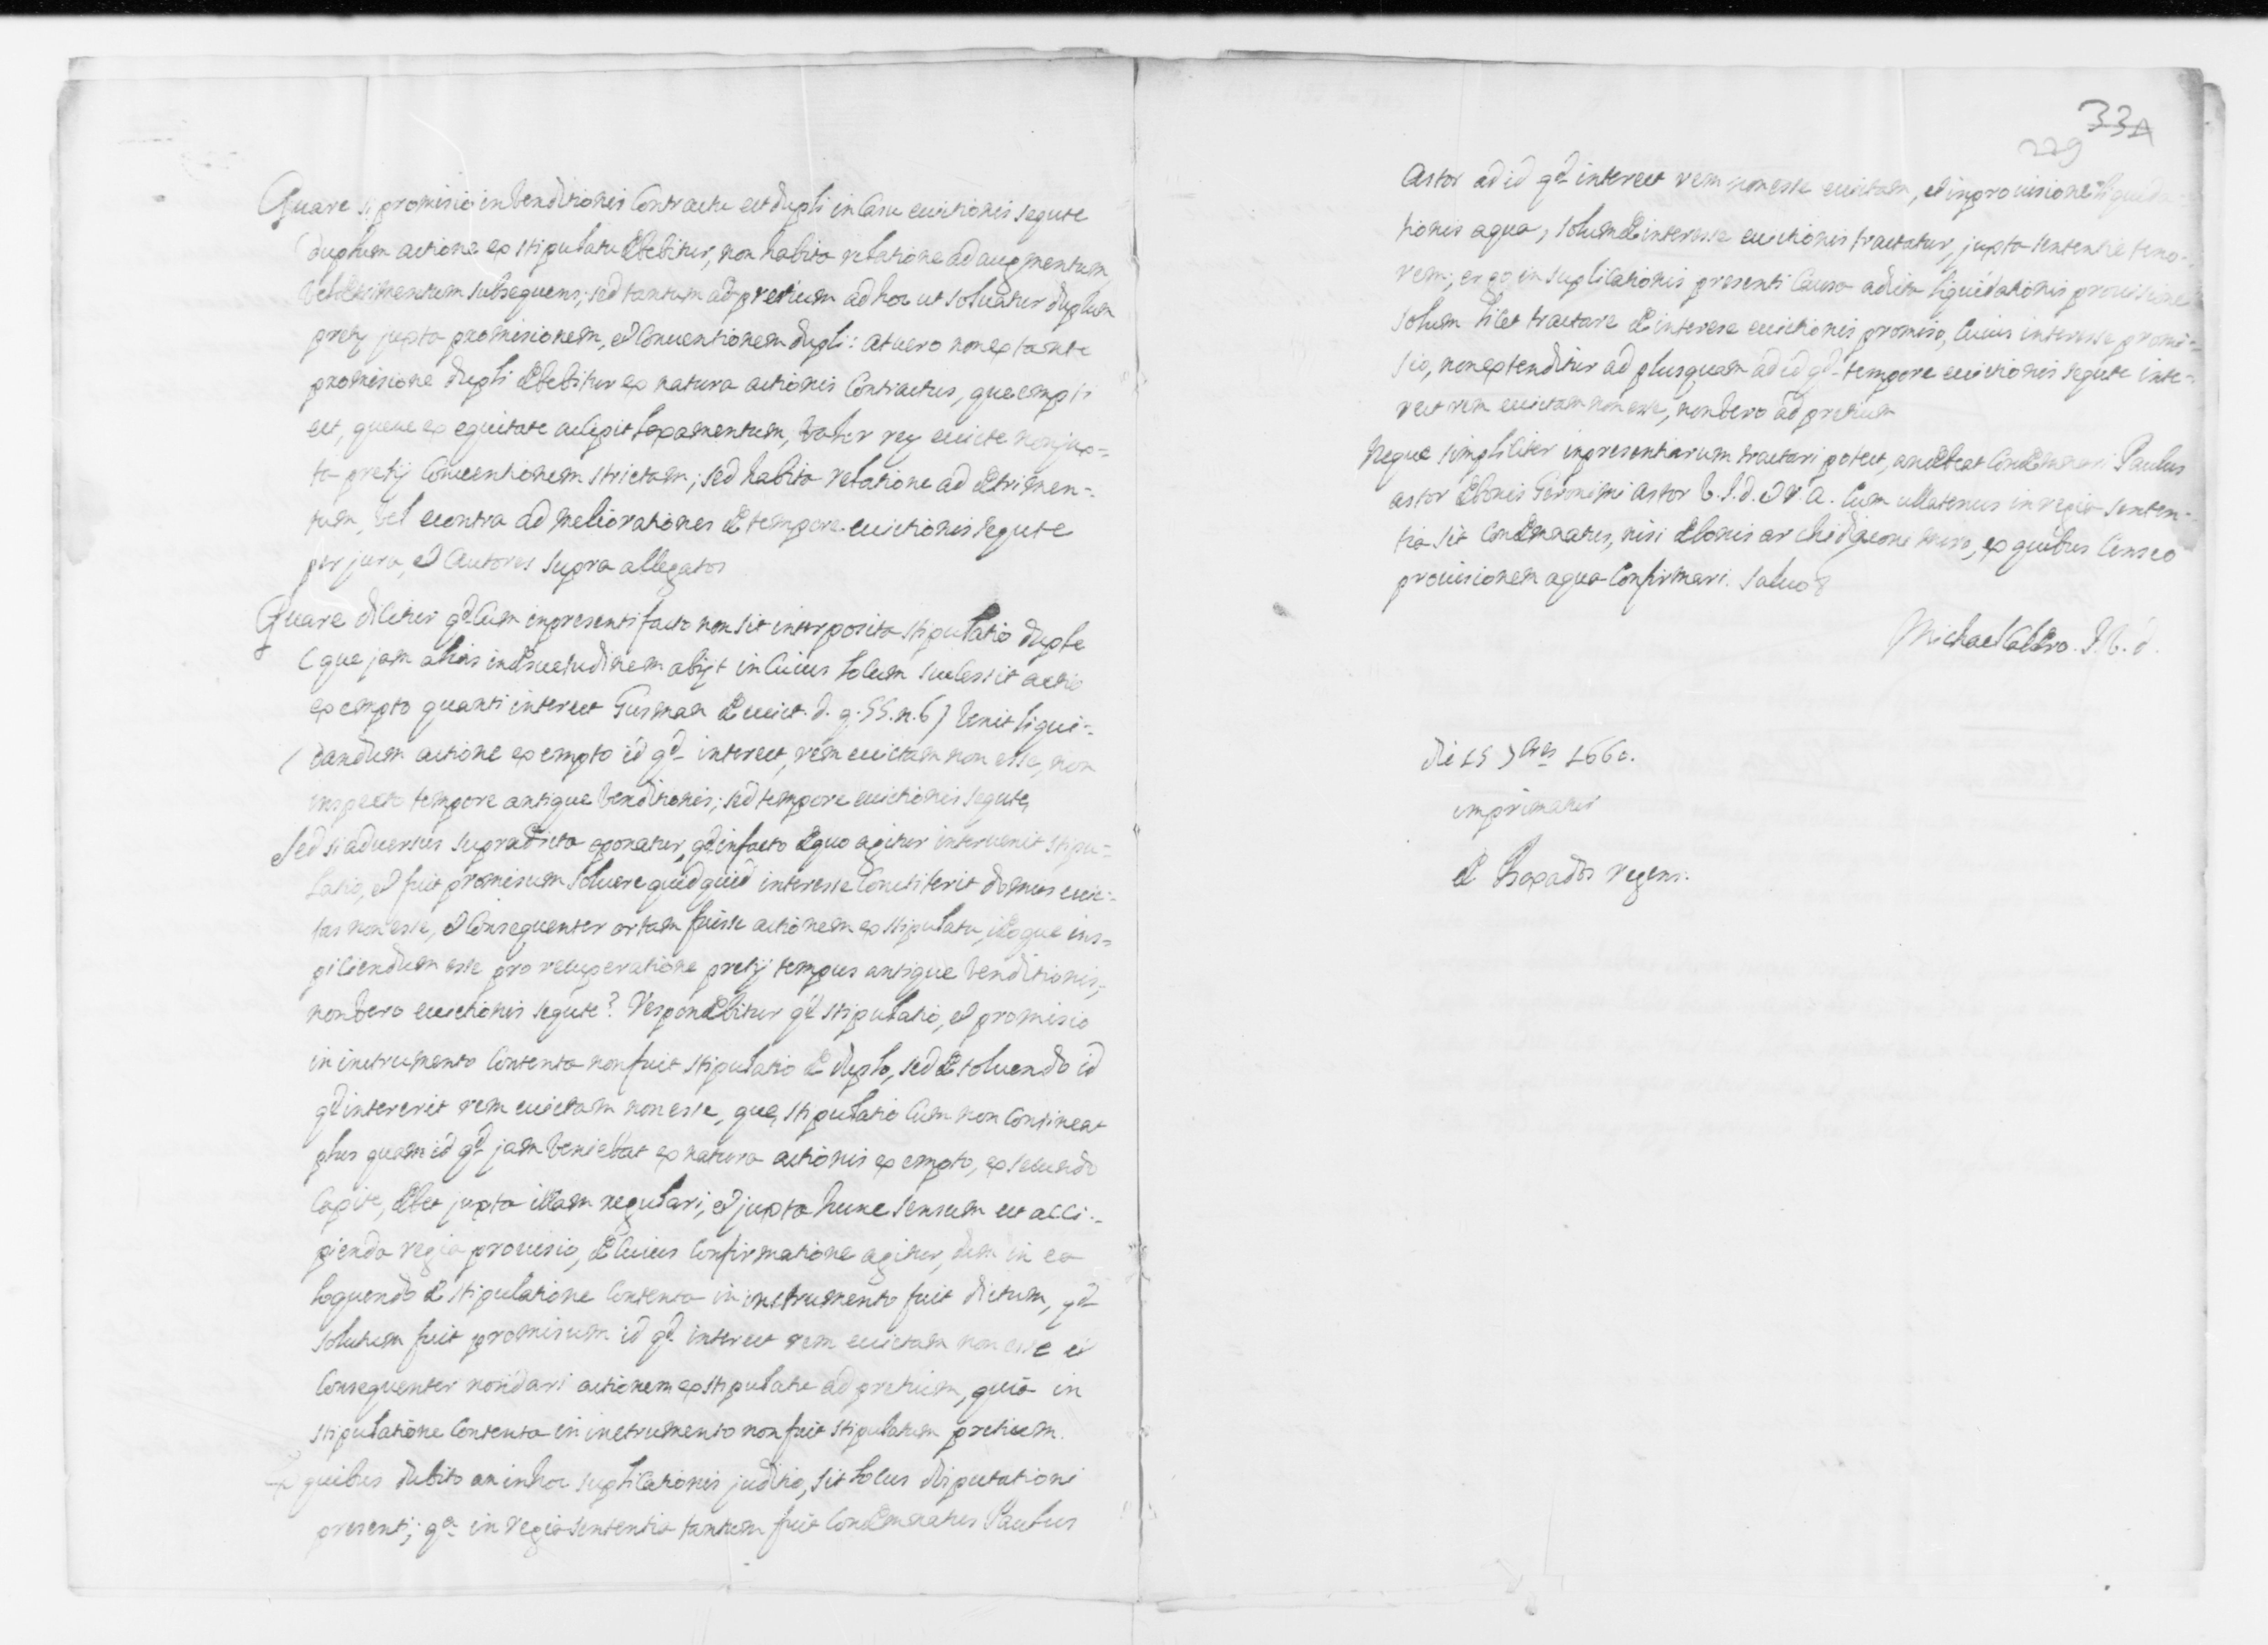 Quare si promisio in venditionis Contractu est dupli in Casu evictionis sequte
duplum actione ex stipulatu debebitur, non habita relatione ad augmentum,
vel detrimentum subsequens; sed tantum ad pretium ad hoc ut solvatur duplum
pretij juxta promisionem, et Conventionem dupli: at vero non extante
promisione dupli debebitur ex natura actionis Contractus, que empti
est, queue ex equitate accipit laxamentum, valor rey evicte non jux=
ta pretij Conventionem strictam; sed habita relatione ad detrimen-
tum, vel econtra ad meliorationes de tempore evictionis sequte
per jura, et Autores supra allegatos
Quare dicitur qd Cum in presenti facto non sit interposita stipulatio duple
(que jam alias in desuetudinem abijt in Cuius locum successit actio
ex empto quanti interest Gusman de evict. d. q. 55. n. 6) venit liqui=
dandum actione ex empto id qd interest, rem evictam non esse, non
inspecto tempore antique venditionis; sed tempore evictionis sequte,
Sed si adversus supradicta oponatur, qd in facto de quo agitur intervenit stipu=
latio, et fuit promisum solvere quidquid interesse Consisterit domus evic=
tas non esse, et Consequenter ortam fuisse actionem ex stipulatu, ideoque ins=
piciendum esse pro recuperatione pretij tempus antique venditionis,
non vero evictionis sequte? Respondebitur qd stipulatio, et promisio
in instrumento Contenta non fuit stipulatio de duplo, sed de solvendo id
qd intererit rem evictam non esse, que, stipulatio Cum non Contineat
plus quam id qd jam veniebat ex natura actionis ex empto, ex secundo
Capite, debet juxta illam regulari, et juxta hunc sensum est acci-
pienda regia provisio, de Cuius Confirmatione agitur, dum in ea
loquendo de stipulatione Contenta in instrumento fuit dictum, qd
solutum fuit promisum id qd interest rem evictam non esse et
Consequenter non dari actionem ex stipulatu ad pretium, quia in
stipulatione Contenta in instrumento non fuit stipulatum pretium.
Ex quibus dubito an in hoc suplicationis juditio, sit locus disputationi
presenti; qa in Regia sententia tantum fuit Condemnatus Paulus
33A
229
Astor ad id qd interest rem non esse evictam, et in provisione liquida-
tionis aqua, solum de interesse evictionis tractatur, juxta sententie teno-
rem; ergo in suplicationis presenti Causa adita liquidationis provisione
solum licet tractare de interese evictionis promiso, Cuius interesse promi-
sio, non extenditur ad plusquam ad id qd tempore evictionis sequte inte-
rest rem evictam non esse, non vero ad pretium
Neque simpliciter inpresentiarum tractari potest, an debeat Condemnari Paulus
astor de bonis Geronimi Astor V.J.d. et R.A. Cum ullatenus in regia senten-
tia sit Condemnatus, nisi de bonis ex quibus Censeo
provisionem aqua Confirmari. Salvo &
Michael Caldero. J.V.d.
die 15 7bris 1660.
imprimatur
de Boxados regens.